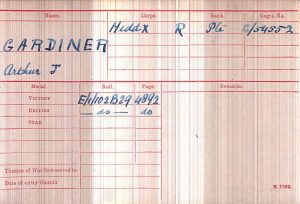 Name. Corps. Rank. Regtl. No.
GARDINER Middx R Pte G/54552
Arthur J
Medal. Roll. Page. Remarks.
VICTORY E/1/102B29 4892
BRITISH — do — do
STAR
Theatre of War first served in
Date of entry therein
K. 1380.